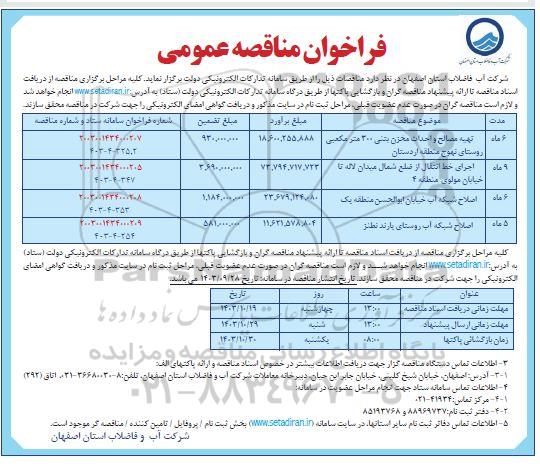 شرکت آب و فاضلاب استان اصفهان
فراخوان مناقصه عمومی
شرکت آب و فاضلاب استان اصفهان در نظر دارد مناقصات ذیل را از طریق سامانه تدارکات الکترونیکی دولت برگزار نماید. کلیه مراحل برگزاری مناقصه از دریافت
اسناد مناقصه تا ارائه پیشنهاد مناقصه گران و بازگشایی پاکتها از طریق درگاه سامانه تدارکات الکترونیکی دولت (ستاد) به آدرس: www.setadiran.ir انجام خواهد شد
و لازم است مناقصه گران در صورت عدم عضویت قبلی، مراحل ثبت نام در سایت مذکور و دریافت گواهی امضای الکترونیکی را جهت شرکت در مناقصه محقق سازند.
مدت موضوع مناقصه مبلغ برآورد مبلغ تضمین شماره فراخوان سامانه ستاد و شماره مناقصه
۶ ماه تهیه مصالح و احداث مخزن بتنی ۳۰۰ متر مکعبی روستای نهوج منطقه اردستان ۱۸,۶۰۰,۲۵۵,۸۸۸ ۹۳۰,۰۰۰,۰۰۰ ۲۰۰۳۰۰۱۴۳۴۰۰۰۲۰۷
۴۰۳-۴-۳۲۵,۲
۹ ماه اجرای خط انتقال از ضلع شمال میدان لاله تا خیابان مولوی منطقه ۴ ۷۳,۷۹۴,۷۱۷,۷۲۳ ۳,۶۹۰,۰۰۰,۰۰۰ ۲۰۰۳۰۰۱۴۳۴۰۰۰۲۰۵
۴۰۳-۴-۳۴۷
۶ ماه اصلاح شبکه آب خیابان ابوالحسن منطقه یک ۲۳,۶۷۹,۱۲۴,۰۸۰ ۱,۱۸۴,۰۰۰,۰۰۰ ۲۰۰۳۰۰۱۴۳۴۰۰۰۲۰۸
۴۰۳-۴-۳۵۳
۵ ماه اصلاح شبکه آب روستای یارند نطنز ۱۱,۶۲۱,۵۷۸,۸۰۴ ۵۸۱,۰۰۰,۰۰۰ ۲۰۰۳۰۰۱۴۳۴۰۰۰۲۰۹
۴۰۳-۴-۲۵۴
کلیه مراحل برگزاری مناقصه از دریافت اسناد مناقصه تا ارائه پیشنهاد مناقصه گران و بازگشایی پاکتها از طریق درگاه سامانه تدارکات الکترونیکی دولت (ستاد)
به آدرس: www.setadiran.ir انجام خواهد شد و لازم است مناقصه گران در صورت عدم عضویت قبلی، مراحل ثبت نام در سایت مذکور و دریافت گواهی امضای
الکترونیکی را جهت شرکت در مناقصه محقق سازند. تاریخ انتشار مناقصه در سامانه: تاریخ ۱۴۰۳/۰۹/۲۸ می باشد.
عنوان ساعت روز تاریخ
مهلت زمانی دریافت اسناد مناقصه ۱۳:۰۰ چهارشنبه ۱۴۰۳/۱۰/۱۹
مهلت زمانی ارسال پیشنهاد ۱۳:۰۰ شنبه ۱۴۰۳/۱۰/۲۹
زمان بازگشائی پاکتها ۰۸:۰۰ یکشنبه ۱۴۰۳/۱۰/۳۰
۳- اطلاعات تماس دستگاه مناقصه گزار جهت دریافت اطلاعات بیشتر در خصوص اسناد مناقصه و ارائه پاکتهای الف:
۳-۱- آدرس: اصفهان، خیابان شیخ کلینی، خیابان جابر ابن حیان، دبیرخانه معاملات شرکت آب و فاضلاب استان اصفهان. تلفن: ۸-۳۶۶۸۰۰۳۰-۰۳۱ اتاق (۲۹۲)
۴- اطلاعات تماس سامانه ستاد جهت انجام مراحل عضویت در سامانه:
۴-۱- مرکز تماس: ۴۱۹۳۴-۰۲۱
۴-۲- دفتر ثبت نام: ۸۸۹۶۹۷۳۷ و ۸۵۱۹۳۷۶۸
۵- اطلاعات تماس دفاتر ثبت نام سایر استانها، در سایت سامانه (www.setadiran.ir) بخش ثبت نام / پروفایل / تامین کننده / مناقصه گر موجود است.
شرکت آب و فاضلاب استان اصفهان
پایگاه اطلاع رسانی مناقصه و مزایده